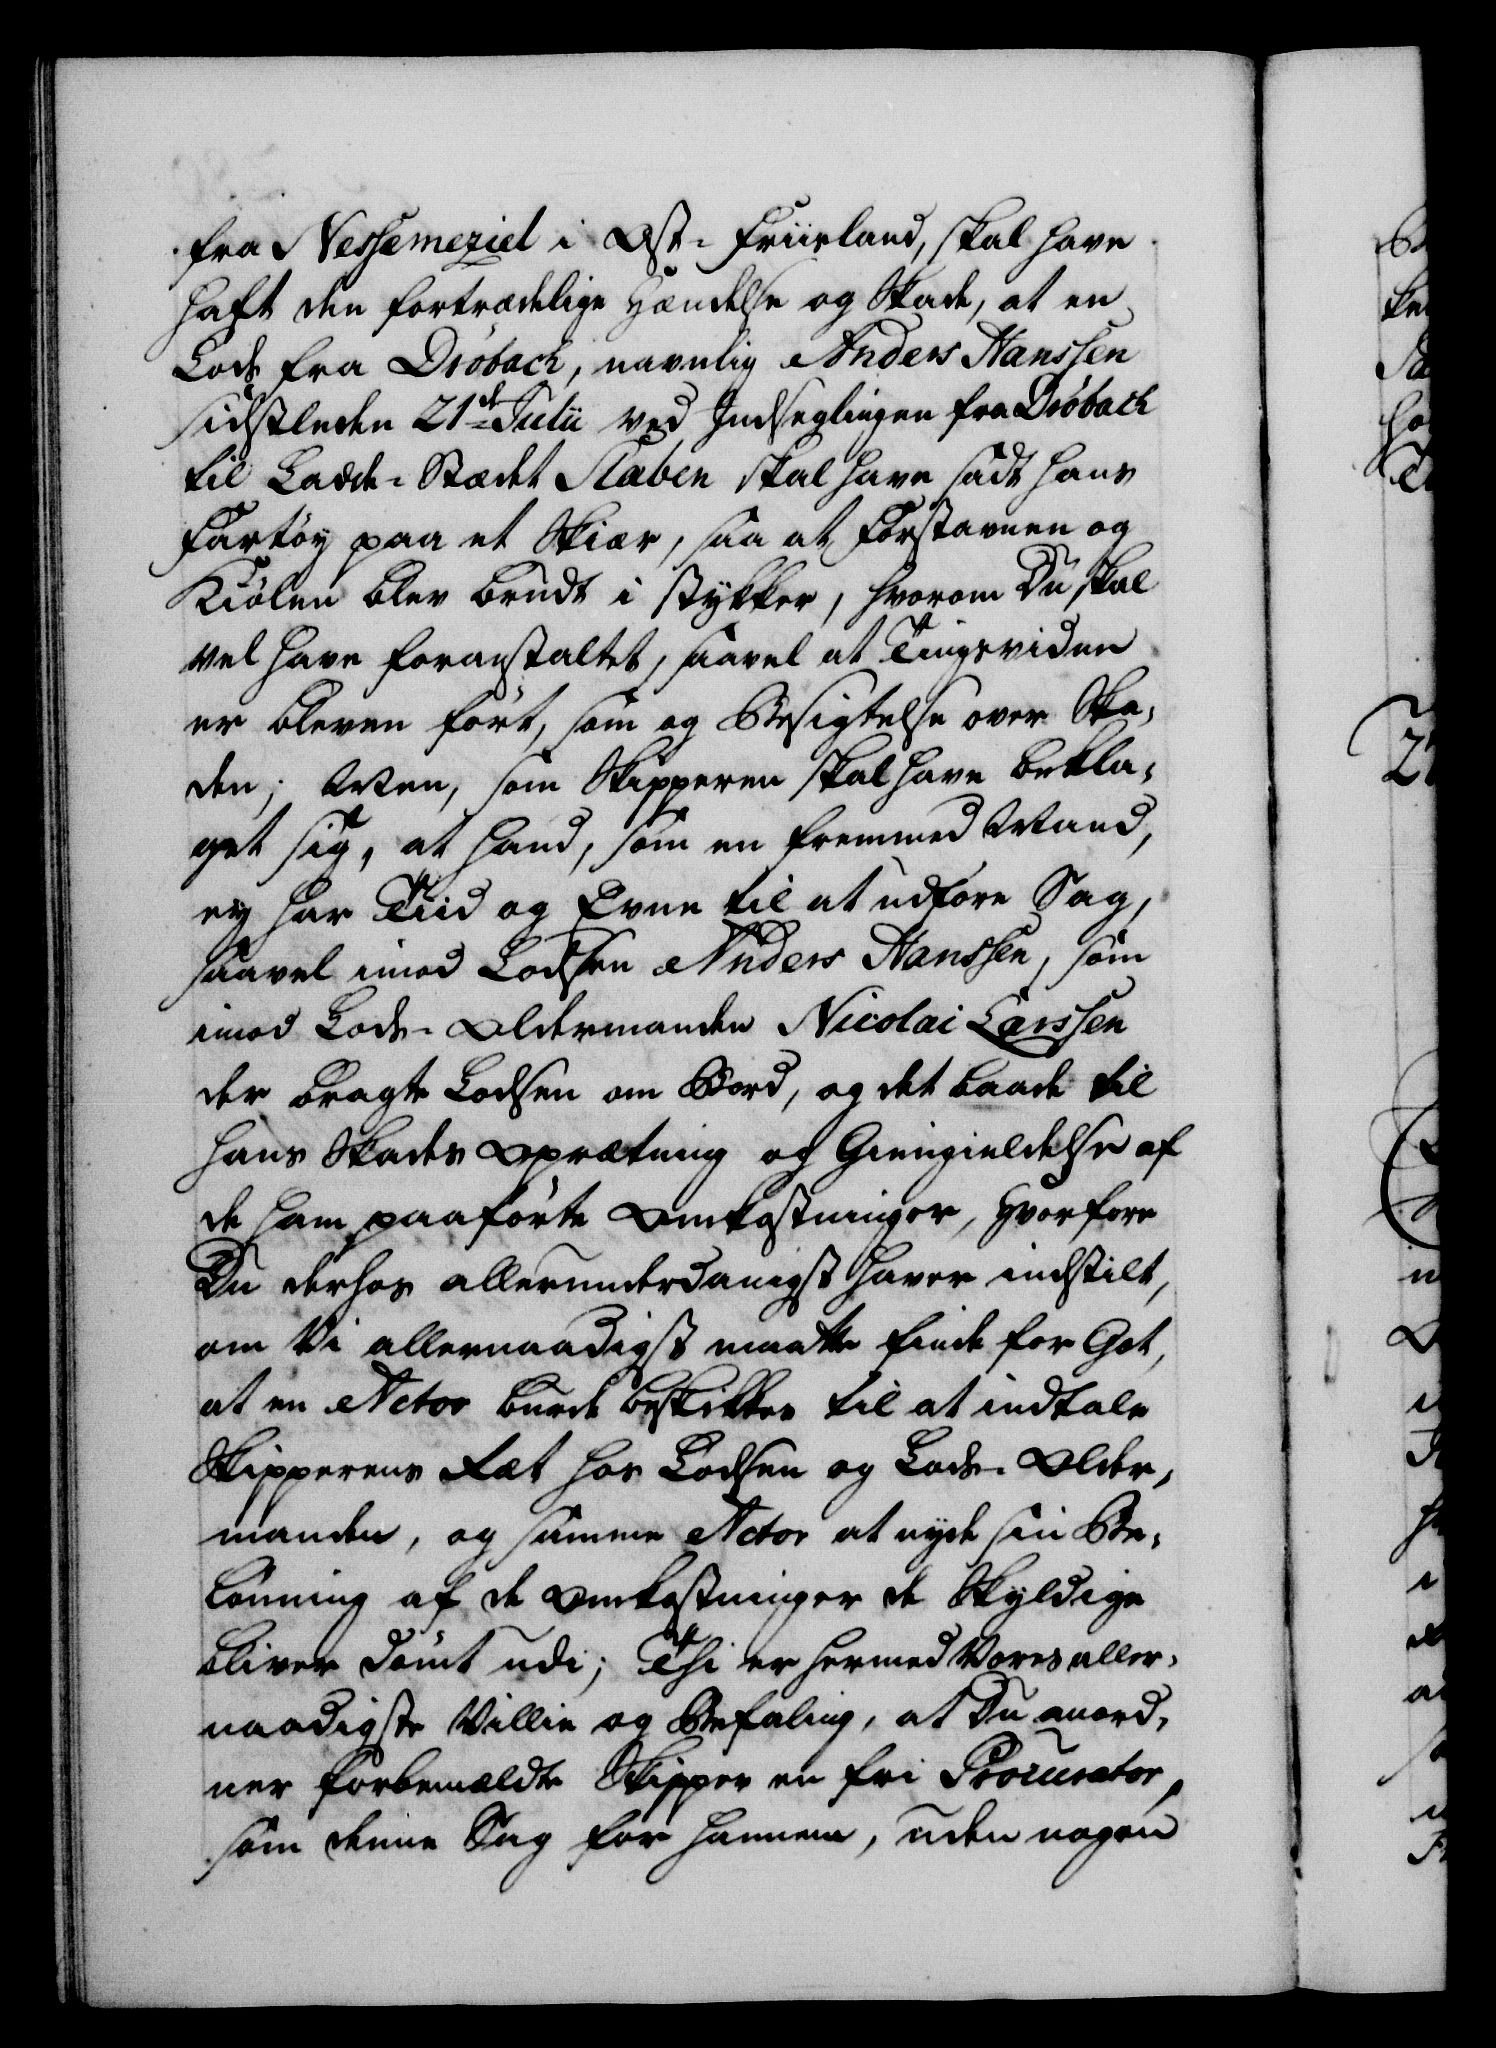 fra Nessemeziel i Ost-Friisland, skal have
haft den fortrædelige Hændelse og Skade, at en
Lods fra Drøbach, navnlig Anders Hanssen
sidstleden 21de Julii ved Indseglingen fra Drøbach
til Ladde-Stædet Slæben skal have sadt hans
Fartøy paa et Skiær, saa at Forstavnen og
Kiølen blev brudt i stykker, hvorom Du skal
vel have foranstaltet, saavel at Tingsvidne
er bleven ført, som og Besigtelse over Ska-
den; Men, som Skipperen skal have bekla-
get sig, at hand, som en fremmed Mand,
ey har Tiid og Evne til at udføre Sag,
saavel imod Lodsen Anders Hanssen, som
imod Lods-Oldermanden Nicolai Larssen
der bragte Lodsen om Bord, og det baade til
hans Skades Oprætning og Giengieldelse af
de ham paaførte Omkostninger, Hvorfore
Du derhos allerunderdanigst haver indstilt,
om Vi allernaadigst maatte finde for Got,
at en Actor burde beskikkes til at indtale
Skipperens Ræt hos Lodsen og Lods-Older-
manden, og samme Actor at nyde sin Be-
lønning af de Omkostninger de Skyldige
bliver dømt udi; Thi er hermed Vores aller-
naadigste Villie og Befaling, at Du anord-
ner forbemældte Skipper en fri Procurator,
som denne Sag for hannem, uden nogen